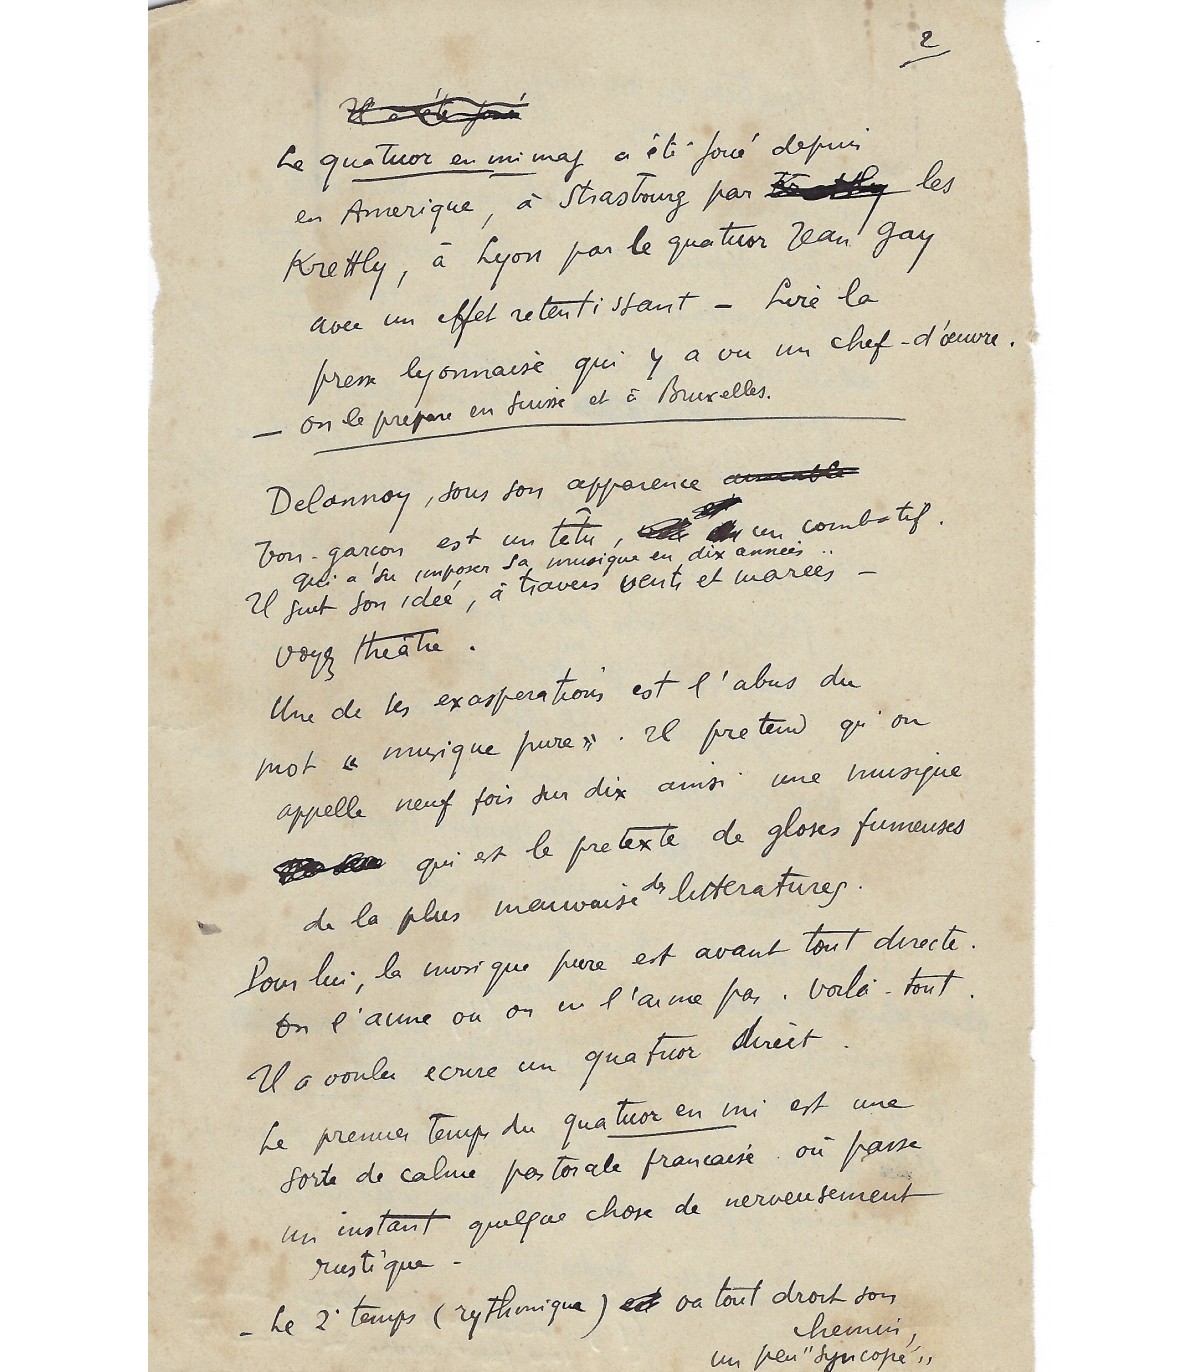 2
Il a été joué
Le quatuor en mi maj a été joué depuis
en Amerique, à Strasbourg par Krettly les
Krettly, à Lyon par le quatuor Jean Gay
avec un effet retentissant – Lire la
presse lyonnaise qui y a vu un chef-d'œuvre.
– on le prépare en Suisse et à Bruxelles.
Delannoy, sous son apparence aimable
bon-garçon est un têtu, et un combatif.
qui a su imposer sa musique en dix années..
Il suit son idée, à travers vents et marées –
voyez théâtre.
Une de ses exasperations est l'abus du
mot « musique pure ». Il pretend qu'on
appelle neuf fois sur dix ainsi une musique
qui est le pretexte de gloses fumeuses
de la plus mauvaise des litteratures.
Pour lui, la musique pure est avant tout directe.
On l'aime ou on ne l'aime pas. Voilà-tout.
Il a voulu ecrire un quatuor direct.
Le premier temps du quatuor en mi est une
sorte de calme pastorale francaise où passe
un instant quelque chose de nerveusement
rustique –
– Le 2e temps (rythmique) est va tout droit son
chemin,
un peu "syncopé"